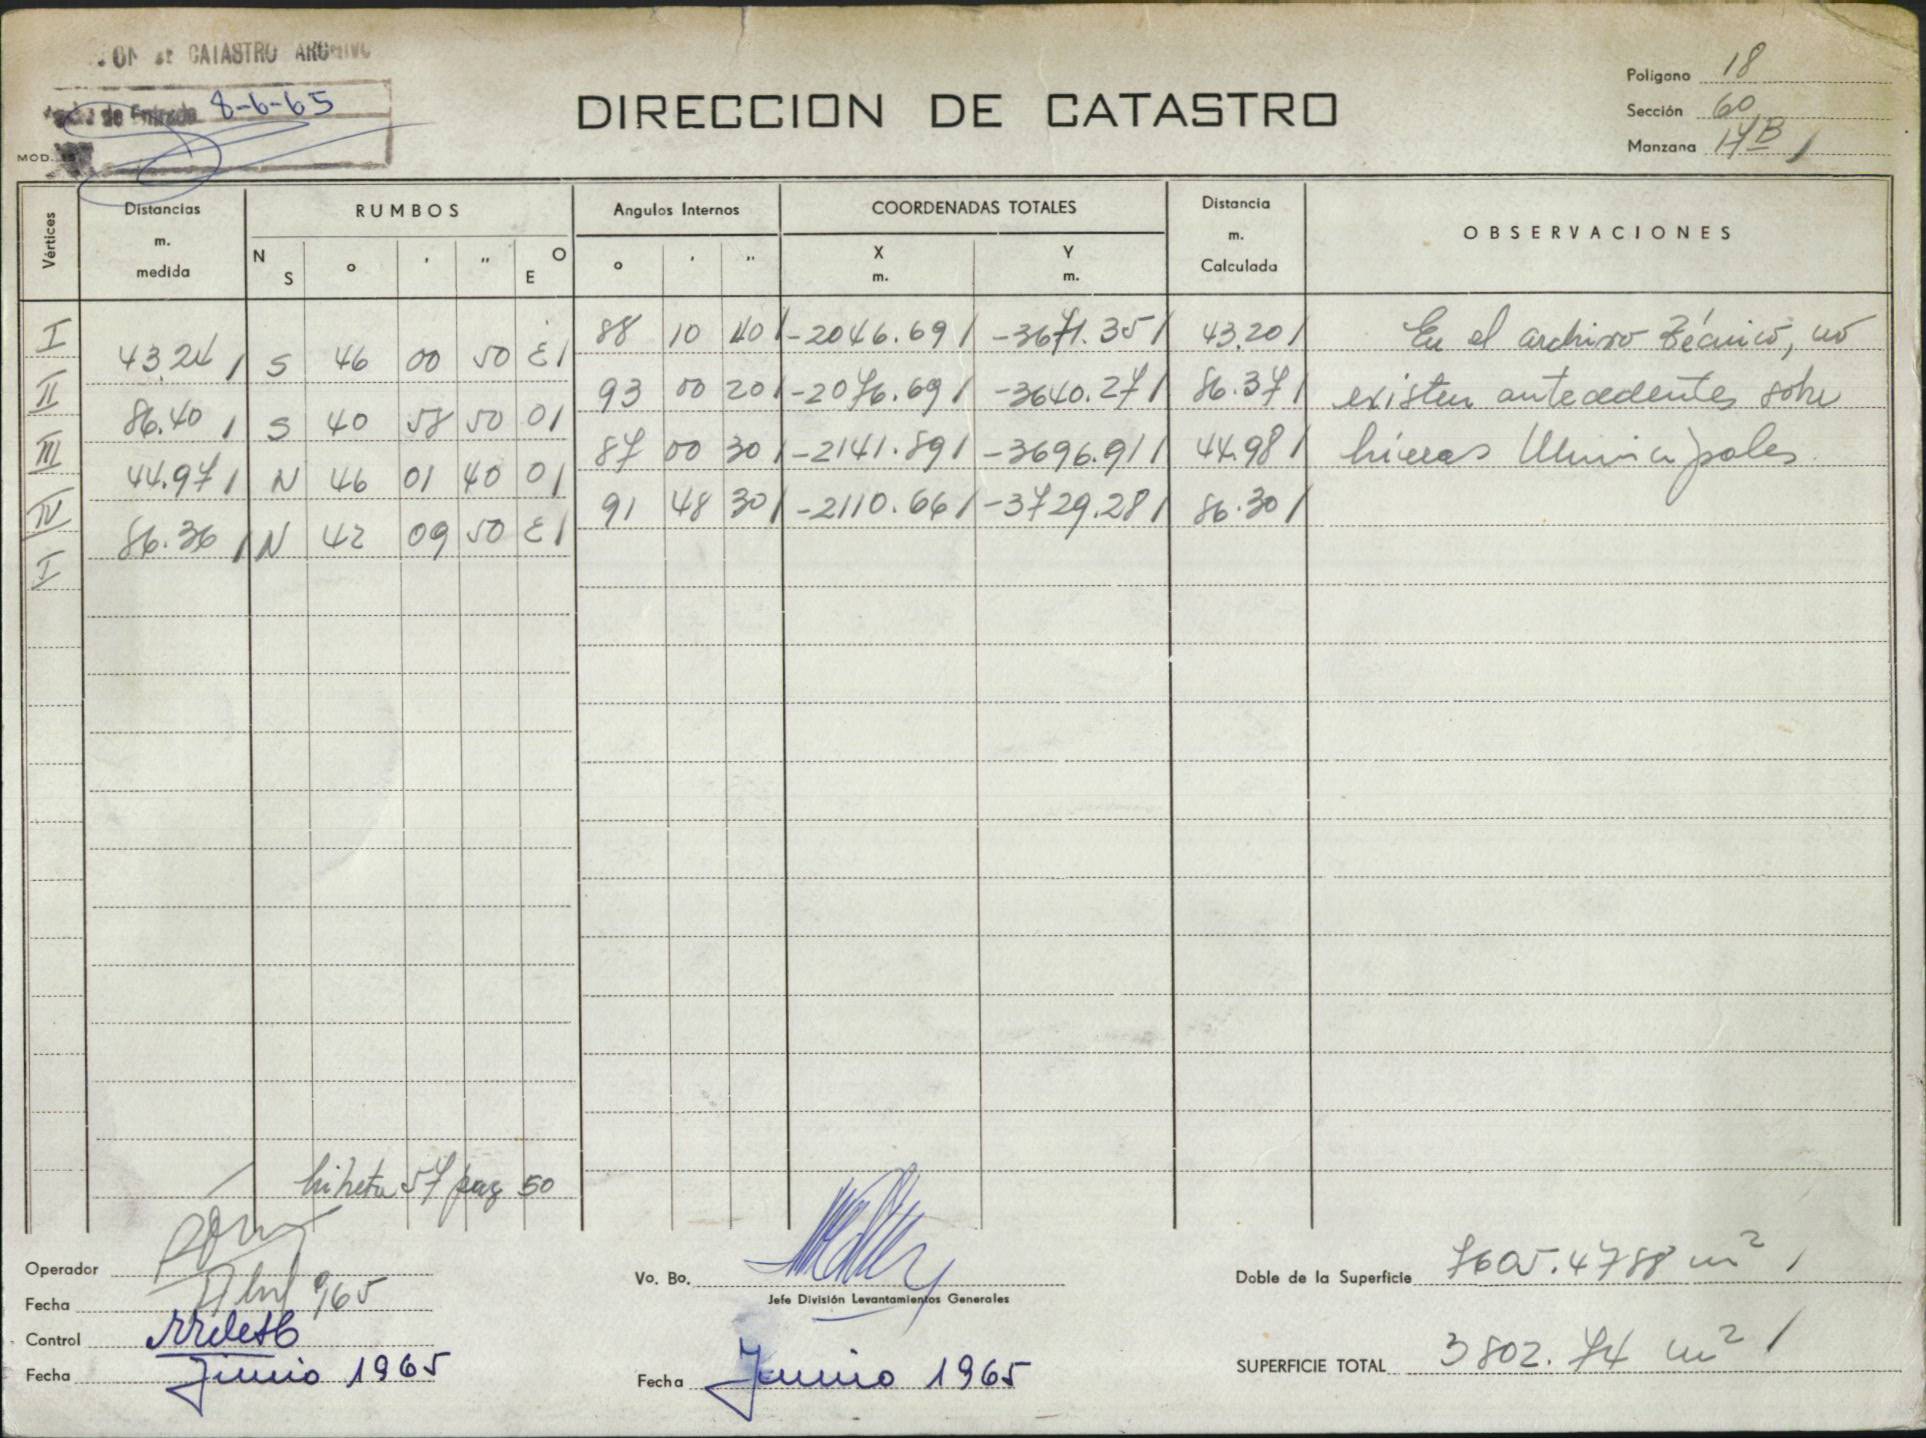 CATASTRO ARCHIVO
de Entrada 8-6-65
MOD.
DIRECCION DE CATASTRO
Polígono 18
Sección 60
Manzana 17B /
Vértices
Distancias m. medida
RUMBOS
N S ° ' " E O
Angulos Internos
° ' "
COORDENADAS TOTALES
X m. Y m.
Distancia m. Calculada
OBSERVACIONES
I 88 10 40 / -2046.69 / -3671.35 / 43.20 / En el archivo Técnico, no
43.24 / S 46 00 50 E /
II 93 00 20 / -2076.69 / -3640.27 / 86.37 / existen antecedentes sobre
86.40 / S 40 58 50 O /
III 87 00 30 / -2141.89 / -3696.91 / 44.98 / líneas Municipales.
44.97 / N 46 01 40 O /
IV 91 48 30 / -2110.66 / -3729.28 / 86.30 /
86.36 / N 42 09 50 E /
I
Libreta 57 pag 50
Operador
Fecha 965
Control
Fecha Junio 1965
Vo. Bo.
Jefe División Levantamientos Generales
Fecha Junio 1965
Doble de la Superficie 7605.4788 m² /
SUPERFICIE TOTAL 3802.74 m² /